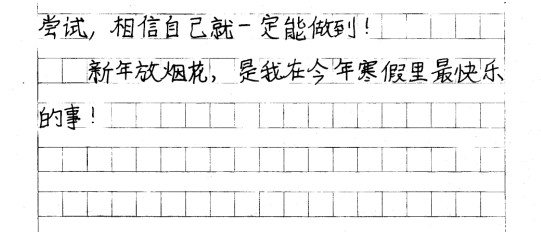 尝试，相信自己就一定能做到！
新年放烟花，是我在今年寒假里最快乐
的事！